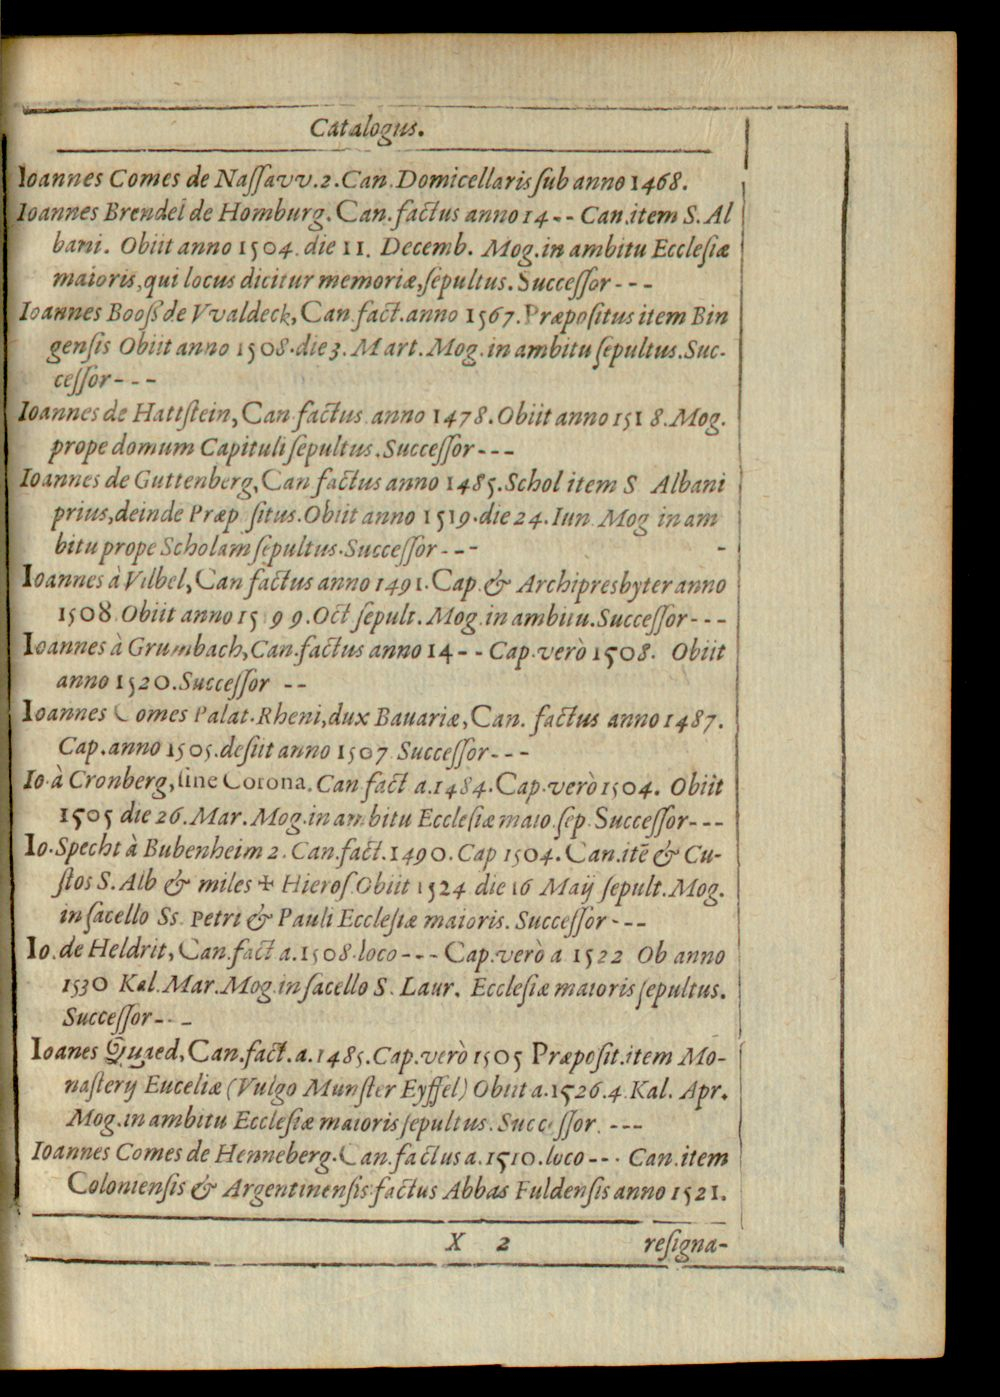 Catalogus.
Ioannes Comes de Naſſavv.2.Can.Domicellaris ſub anno 1468.
Ioannes Brendel de Homburg.Can.factus anno 14-- Can.item S.Al
bani. Obiit anno 1504.die 11. Decemb. Mog.in ambitu Eccleſiæ
maioris,qui locus dicitur memoriæ,ſepultus.Succeſſor---
Ioannes Booſß de Vvaldeck,Can.fact.anno 1567.Præpoſitus item Bin
genſis Obiit anno 1508.die 3.Mart.Mog.in ambitu ſepultus.Suc-
ceſſor---
Ioannes de Hattſtein,Can.factus anno 1478.Obiit anno 1518.Mog.
prope domum Capituli ſepultus.Succeſſor---
Ioannes de Guttenberg,Can factus anno 1485.Schol item S Albani
prius,deinde Præp ſitus.Obiit anno 1519.die 24.Iun Mog in am
bitu prope Scholam ſepultus.Succeſſor---
Ioannes à Vilbel,Can factus anno 1491.Cap.& Archipresbyter anno
1508 Obiit anno 15 9 9.Oct ſepult.Mog.in ambitu.Succeſſor---
Ioannes à Grumbach,Can.factus anno 14-- Cap.verò 1508. Obiit
anno 1520.Succeſſor --
Ioannes Comes Palat.Rheni,dux Bauariæ,Can. factus anno 1487.
Cap.anno 1505.deſiit anno 1507 Succeſſor---
Io.à Cronberg,ſine Corona.Can fact a.1484.Cap.verò 1504. Obiit
1505 die 26.Mar.Mog.in ambitu Eccleſiæ maio.ſep.Succeſſor---
Io.Specht à Bubenheim 2.Can.fact.1490.Cap 1504.Can.itē & Cu-
ſtos S.Alb & miles ✠ Hieroſ.Obiit 1524 die 16 Maij ſepult.Mog.
in ſacello Ss. Petri & Pauli Eccleſiæ maioris. Succeſſor---
Io.de Heldrit,Can.fact a.1508.loco--- Cap.verò a 1522 Ob anno
1530 Kal.Mar.Mog.in ſacello S. Laur. Eccleſiæ maioris ſepultus.
Succeſſor---
Ioanes Quaed,Can.fact.a.1485.Cap.verò 1505 Præpoſit.item Mo-
naſterij Euceliæ (Vulgo Munſter Eyffel) Obiit a.1526.4.Kal. Apr.
Mog.in ambitu Eccleſiæ maioris ſepultus.Succeſſor. ---
Ioannes Comes de Henneberg.Can.factus a.1510.loco--- Can.item
Colonienſis & Argentinenſis factus Abbas Fuldenſis anno 1521.
X 2 reſigna-